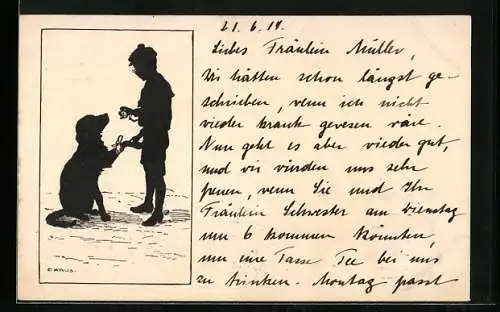 21.6.19.
Liebes Fräulein Müller,
Wir hätten schon längst ge-
schrieben, wenn ich nicht
wieder krank gewesen wäre.
Nun geht es aber wieder gut,
und wir würden uns sehr
freuen, wenn Sie und Ihr
Fräulein Schwester am Dienstag
um 6 kommen könnten,
um eine Tasse Tee bei uns
zu trinken. Montag passt